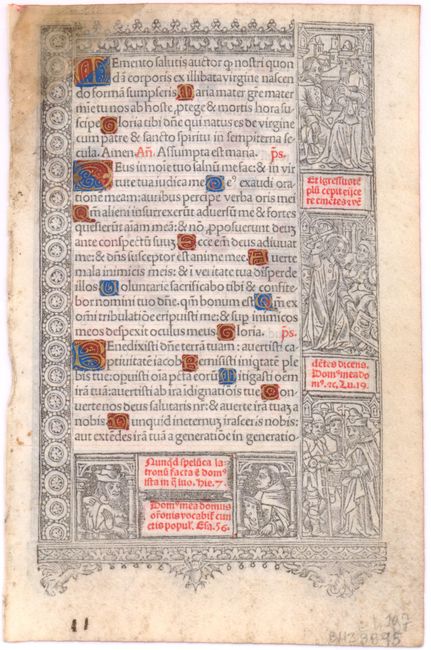 Memento salutis auctor ꝙ nostri quon
dā corporis ex illibata virgine nascen
do formā sumpseris Maria mater gr̄e mater
mīe tu nos ab hoste ꝓtege & mortis hora su
scipe Gloria tibi dn̄e qui natus es de virgine
cum patre & sancto spiritu in sempiterna se
cula. Amen. Añ. Assumpta est maria. p̄s.
Deus in noīe tuo saluū me fac: & in vir
tute tua iudica me Deꝰ exaudi ora
tionē meam: auribus percipe verba oris mei
Qm̄ alieni insurrexerūt aduersū me & fortes
quesierūt aīam meā: & nō ꝓposuerunt deuȝ
ante conspectū suuȝ Ecce em̄ deus adiuuat
me: & dn̄s susceptor est anime mee Auerte
mala inimicis meis: & ī veritate tua disperde
illos Voluntarie sacrificabo tibi & confite
bor nomini tuo dn̄e. qm̄ bonum est Qm̄ ex
omī tribulatiōe eripuisti me: & sup inimicos
meos despexit oculus meus Gloria. p̄s.
Benedixisti dn̄e terrā tuam: auertisti ca
ptiuitatē iacob Remisisti iniq̄tatē ple
bis tue: opuisti oīa pctā eorū Mitigasti oēm
irā tuā: auertisti ab ira īdignatiōis tue Con
uerte nos deus salutaris nr̄: & auerte irā tuaȝ a
nobis Nunquid ineternuȝ irasceris nobis:
aut extēdes irā tuā a generatiōe in generatio
Et īgressus ī tē
plū cepit eijce
re emētes ⁊ vē
dētes dicens.
Domꝰ mea do
mꝰ. ⁊c. Lu. 19.
Nunqd speluca la
tronū facta ē domꝰ
ista in q̄ īuo. Hie. 7.
Domꝰ mea domus
orōnis vocabit̄ cun
ctis popul. Esa. 56.
11
197